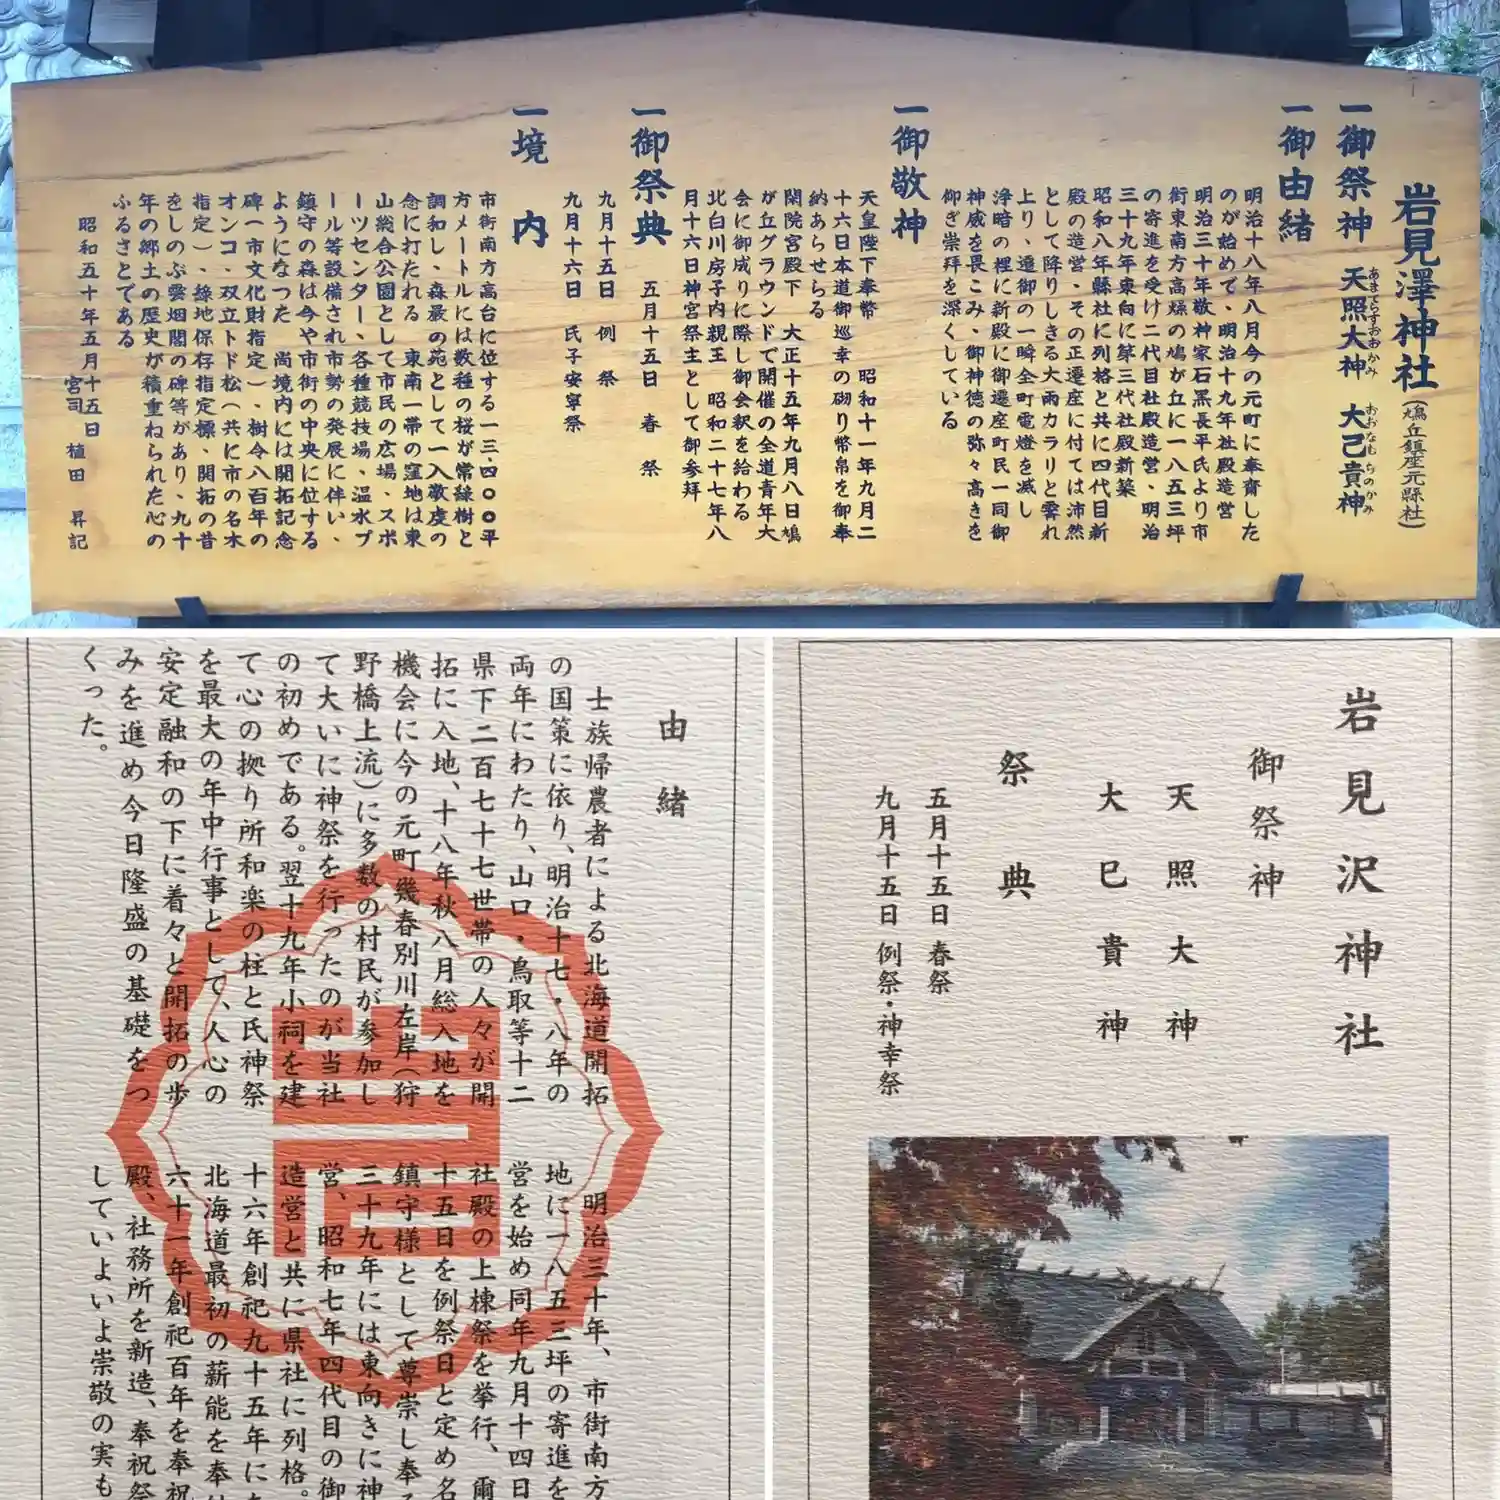 岩見澤神社(鳩丘鎮座元縣社)
一御祭神 天照大神 大己貴神
あまてらすおおかみ おおなむちのかみ
一御由緒
明治十八年八月今の元町に奉齋した
のが始めで、明治十九年社殿造営
明治三十年敬神家石黒長平氏より市
街東南方高燥の鳩が丘に一八五三坪
の寄進を受け二代目社殿造営、明治
三十九年東向に第三代社殿新築
昭和八年縣社に列格と共に四代目新
殿の造営、その正遷座に付ては沛然
として降りしきる大雨カラリと霽れ
上り、遷御の一瞬全町電燈を滅し
浄暗の裡に新殿に御遷座町民一同御
神威を畏こみ、御神徳の弥々高きを
仰ぎ崇拝を深くしている
一御敬神
天皇陛下奉幣 昭和十一年九月二
十六日本道御巡幸の砌り幣帛を御奉
納あらせらる
閑院宮殿下 大正十五年九月八日鳩
が丘グラウンドで開催の全道青年大
会に御成りに際し御会釈を給わる
北白川房子内親王 昭和二十七年八
月十六日神宮祭主として御参拜
一御祭典 五月十五日 春祭
九月十五日 例祭
九月十六日 氏子安寧祭
一境内
市街南方高台に位する一三.四〇〇平
方メートルには数種の桜が常緑樹と
調和し、森厳の苑として一入敬虔の
念に打たれる 東南一帯の窪地は東
山総合公園として市民の広場、スポ
ーツセンター、各種競技場、温水プ
ール等設備され市勢の発展に伴い、
鎮守の森は今や市街の中央に位する
ようになつた 尚境内には開拓記念
碑(市文化財指定)、樹令八百年の
オンコ、双立トド松(共に市の名木
指定)、緑地保存指定標、開拓の昔
をしのぶ雲畑閣の碑等があり、九十
年の郷土の歴史が積重ねられた心の
ふるさとである
昭和五十年五月十五日
宮司 植田 昇記
由緒
士族帰農者による北海道開拓
の国策に依り、明治十七・八年の
両年にわたり、山口・鳥取等十二
県下二百七十七世帯の人々が開
拓に入地、十八年秋八月総入地を
機会に今の元町幾春別川左岸(狩
野橋上流)に多数の村民が参加し
て大いに神祭を行ったのが当社
の初めである。翌十九年小祠を建
て心の拠り所和楽の柱と氏神祭
を最大の年中行事として、人心の
安定融和の下に着々と開拓の歩
みを進め今日隆盛の基礎をつ
くった。
明治三十年、市街南方
地に一八五三坪の寄進を
営を始め同年九月十四日
社殿の上棟祭を挙行、爾
十五日を例祭日と定め名
鎮守様として尊崇し奉る
三十九年には東向きに神
営、昭和七年四代目の御
造営と共に県社に列格。
十六年創祀九十五年に
北海道最初の薪能を奉
六十一年創祀百年を奉祝
殿、社務所を新造、奉祝祭
していよいよ崇敬の実も
岩見沢神社
御祭神
天照大神
大巳貴神
祭典
五月十五日 春祭
九月十五日 例祭・神幸祭